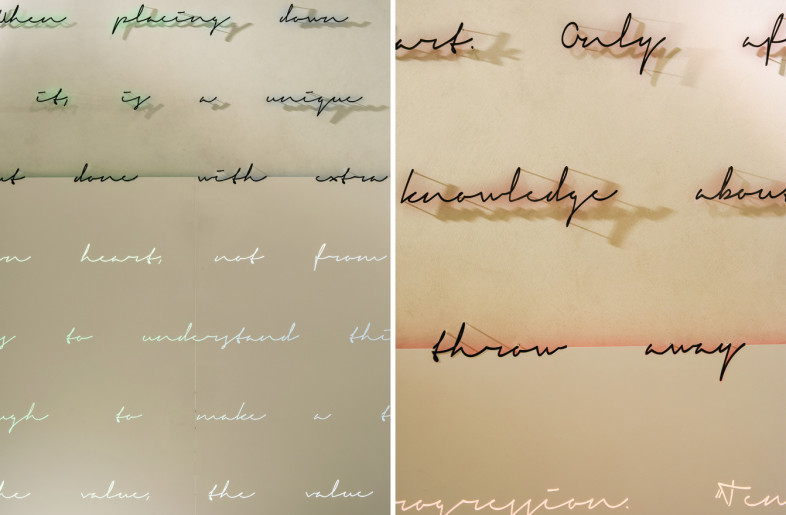 When placing down
it, is a unique
done with extra
heart, not from
to understand
to make a
value, the value
Only
knowledge about
throw away